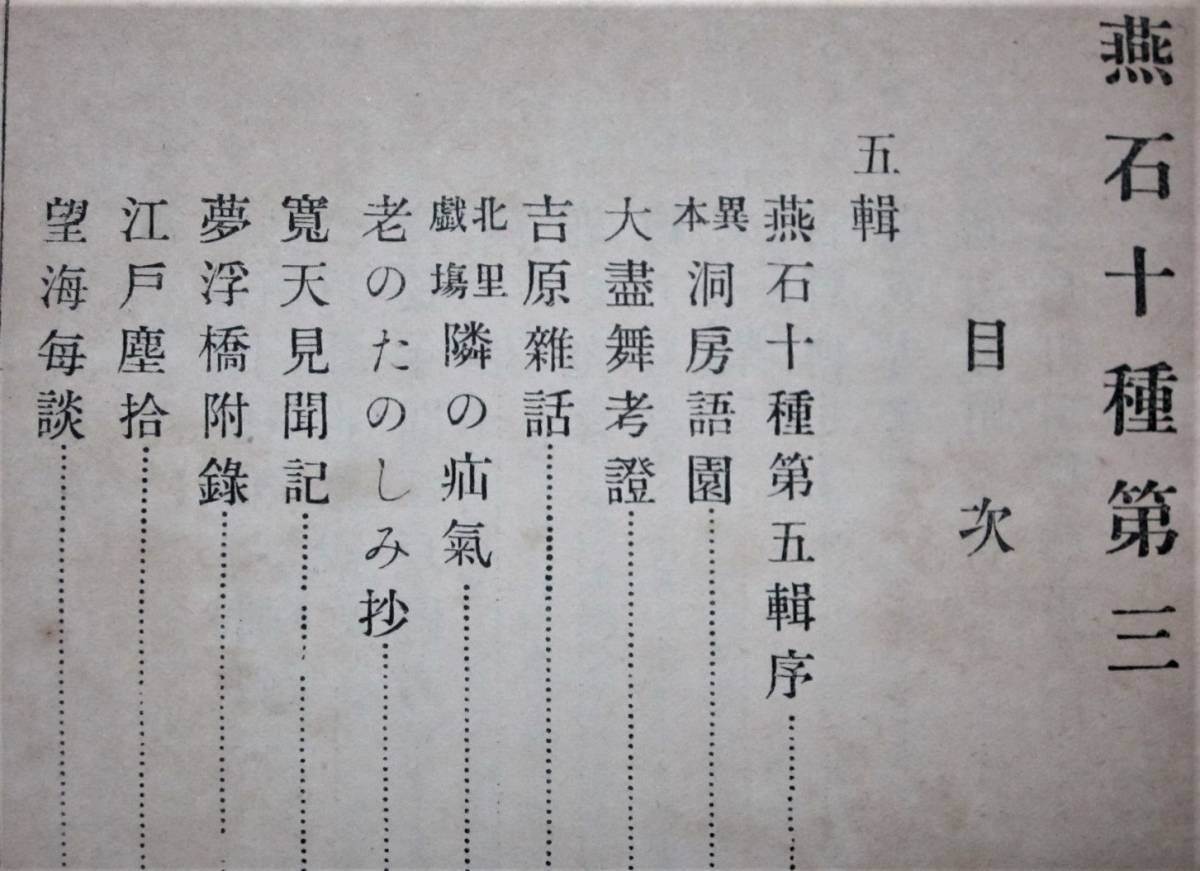 燕石十種第三
目次
五輯
燕石十種第五輯序
異本洞房語園
大盡舞考證
吉原雜話
北里戲塲隣の疝氣
老のたのしみ抄
寬天見聞記
夢浮橋附錄
江戶塵拾
望海每談